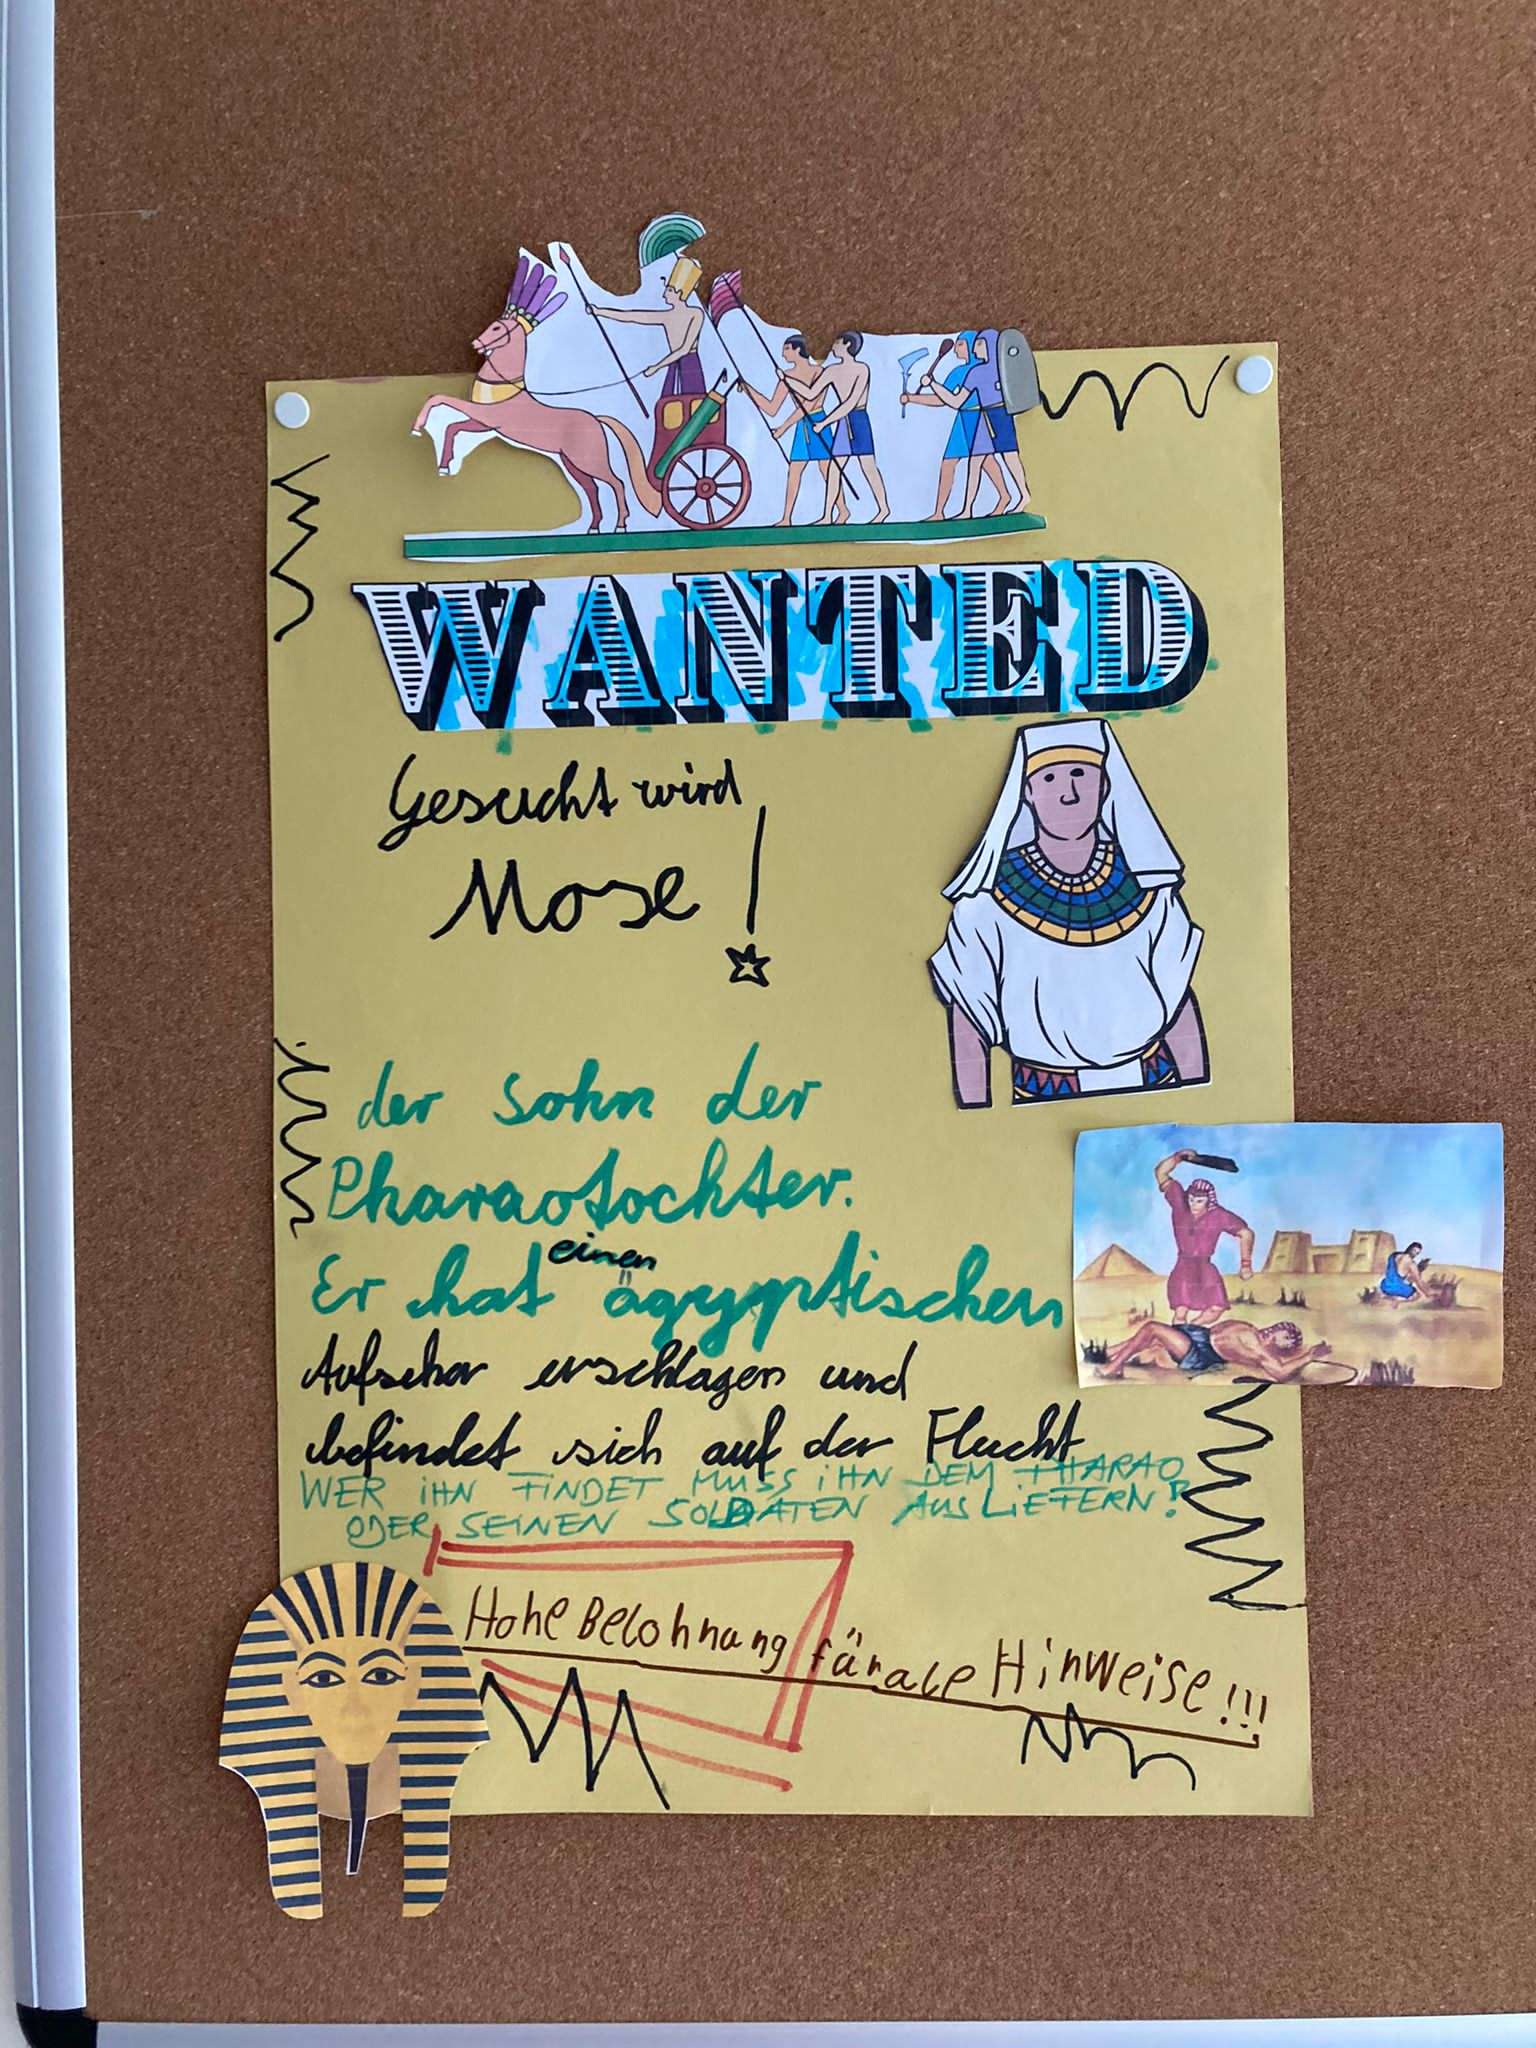 WANTED
Gesucht wird
Mose!
der Sohn der
Pharaotochter.
Er hat einen ägyptischen
Aufseher erschlagen und
befindet sich auf der Flucht
WER iHN FiNDET MUSS iHN DEM PHARAO
ODER SEINEN SOLDATEN AUSLiEFERN!
Hohe Belohnung für ale Hinweise!!!